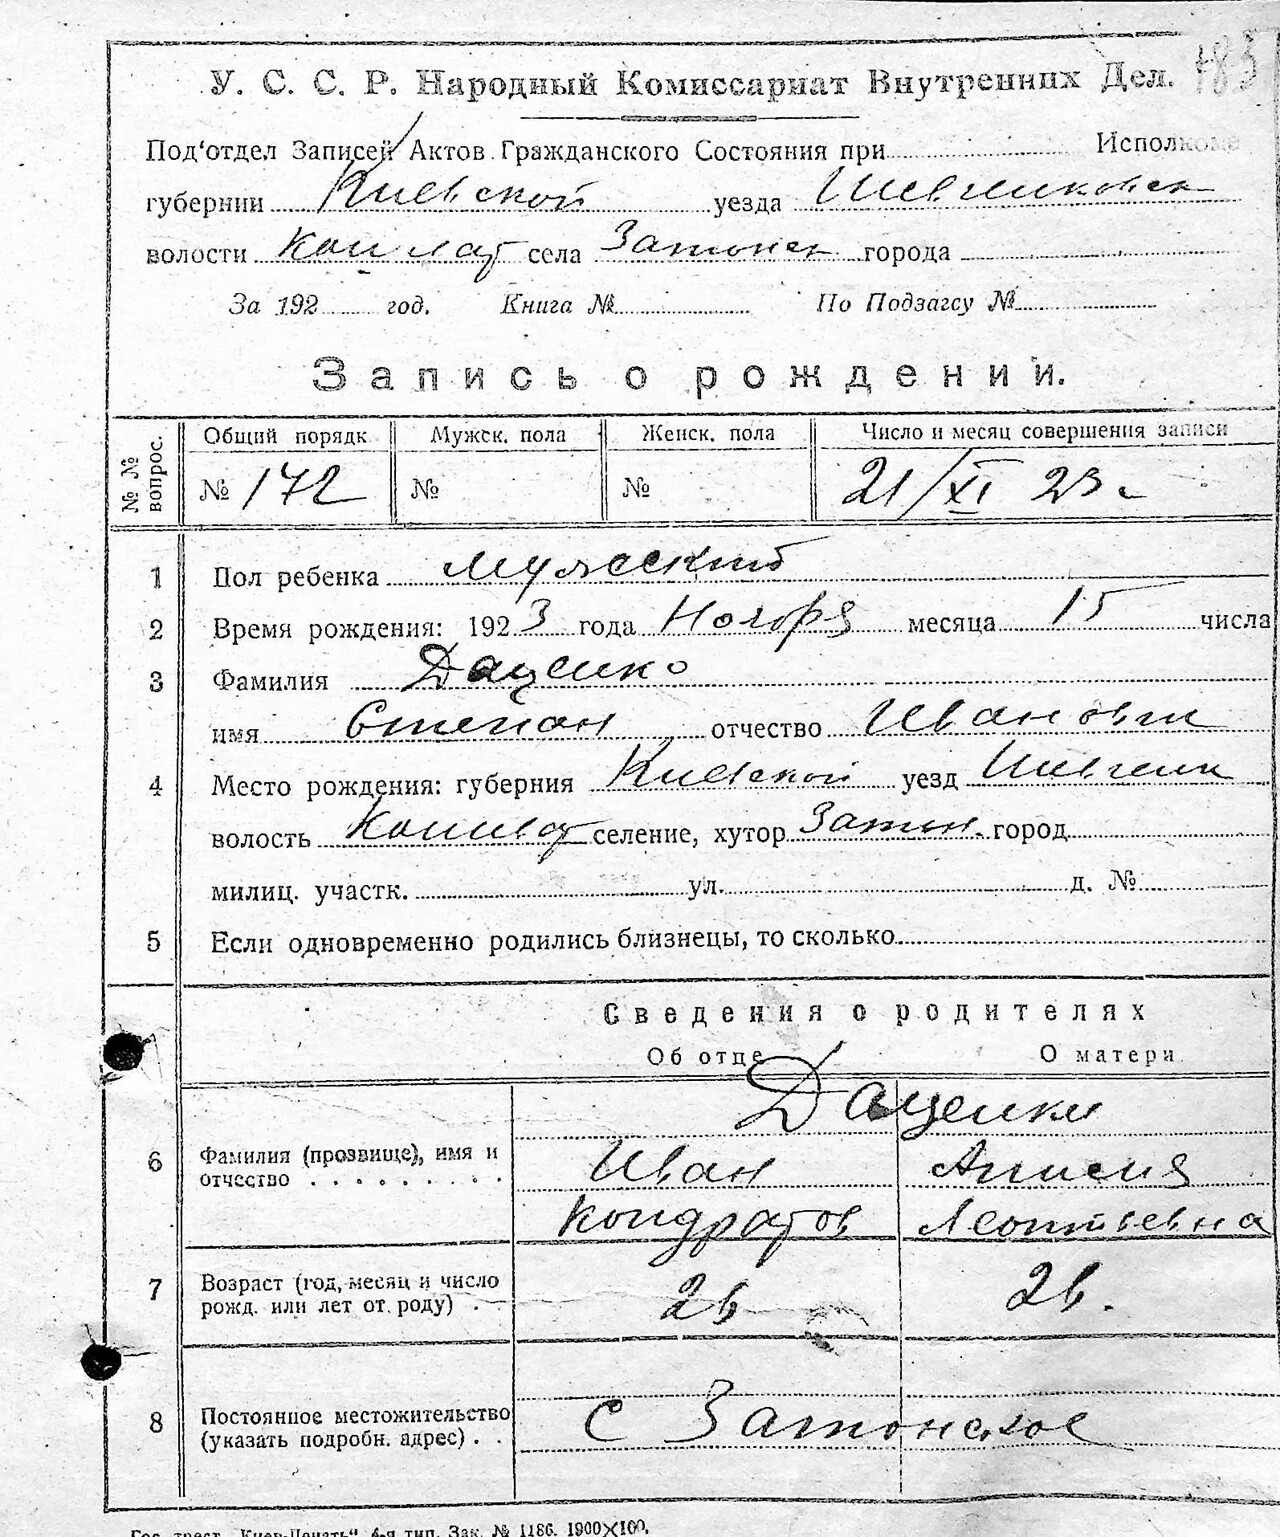 183
У. С. С. Р. Народный Комиссариат Внутренних Дел.
Под'отдел Записей Актов Гражданского Состояния при Исполкоме
губернии Киевской уезда Шевченковск
волости села Затонск города
За 192 год. Книга № По Подзагсу №
Запись о рождении.
№ № вопрос. Общий порядк Мужск. пола Женск. пола Число и месяц совершения записи
№ 172 № № 21/XI 23 г
1 Пол ребенка Мужеский
2 Время рождения: 1923 года Ноября месяца 15 числа
3 Фамилия Даценко
имя Степан отчество Иванович
4 Место рождения: губерния Киевской уезд Шевченк
волость селение, хутор Затон. город
милиц. участк. ул. д. №
5 Если одновременно родились близнецы, то сколько
Сведения о родителях
Об отце О матери
Даценки
6 Фамилия (прозвище), имя и Иван Анисия
отчество . . . . . . . . . Кондратов Леонтьевна
7 Возраст (год, месяц и число 26 26.
рожд. или лет от. роду) . .
8 Постоянное местожительство с Затонское
(указать подробн. адрес) . .
Гос. трест „Киев-Печать“ 4-я тип. Зак. № 1186. 1900×100.